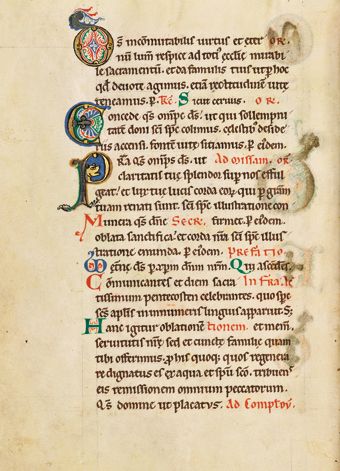 Os̄ incōmutabilis uirtus et eter OR̄.
nū lum̄. respice ad totiꝰ ecclīe mirabi
le sacramentū. et da famulis tuis ut p hoc
qd deuote agimus. etiā rectitudinē uite
teneamus. P. Tr̄c. Sicut ceruus. OR̄.
Concede qs̄ omp̄s ds̄. ut qui sollempni
tatē doni sc̄i sp̄c colimus. celestibꝰ deside
riis accensi. fontē uite sitiamus. P.
Pr̄a qs̄ omp̄s ds̄. ut Ad missam. OR̄
claritatis tue splendor sup nos efful
geat. et lux tue lucis corda eoꝝ qui p grām
tuam renati sunt. sc̄i sp̄c illustratione con
Munera qs̄ dn̄e Secr̄. firmet. p eīdem.
oblata sanctifica. et corda nr̄a sc̄i sp̄c illus
tratione emunda. p eīdem. PREFATIO
etnē ds̄. p xp̄m dn̄m nr̄m. Qui ascendēs.
Cōmunicantes et diem sacra INFRA.
tissimum pentecosten celebrantes. quo sp̄c
sc̄s aplīs innumeris linguis apparuit. S;
Hanc igitur oblationē tionem. et mem̄.
seruitutis nr̄e. sed et cuncte familie quam
tibi offerimus. p his quoq; quos regenera
re dignatus es ex aqua et spū sc̄o. tribuens
eis remissionem omnium peccatorum.
Qs̄ domine ut placatus. Ad Complōr̄.